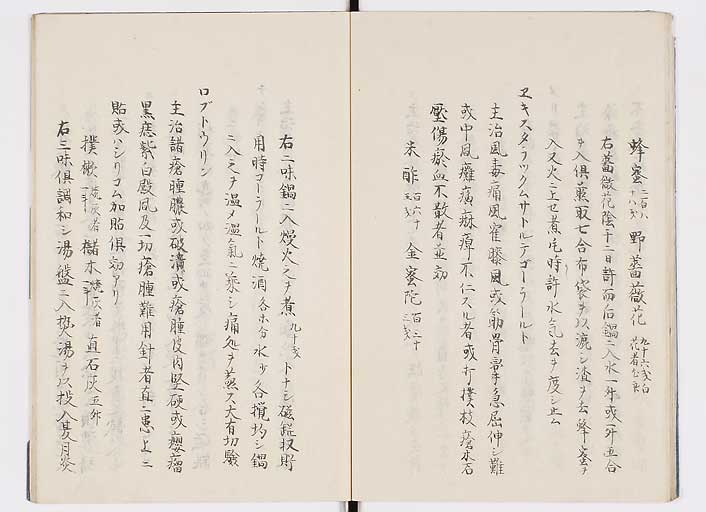 蜂蜜 二百八十八戔 野薔薇花 九十六戔白花者公良
右薔薇花陰干二日許而后鍋ニ入水一舛或一舛五合
ヲ入俱煎取七合布袋ヲ以漉シ渣ヲ去蜂蜜ヲ
入又火ニ上セ煮乇時許水气去ヲ度シ止ム
ヱキスタラックムサトルテゴーラールト
主治風毒痛風寉膝風或筋骨攣急屈伸シ難
或中風癱瘓麻痺不仁スル者或打撲杖瘡木石
壓傷瘀血不散者並効
米酢 百六十戔 金蜜陀 百二十戔
右二味鍋ニ入熳火之ヲ煮九十戔トナシ磁器収貯
用時コーラールト焼酒各ホ分水少各攪均シ鍋
ニ入之ヲ温メ温氣ニ乗シ痛処ヲ蒸ス大有切驗
ロブトウリン
主治諸瘡腫膿或破潰或瘡腫皮肉堅硬或癭瘤
黒痣紫白殿風及一切瘡腫難用針者直ニ患上ニ
貼或ハシリコム加貼俱効アリ
撲樕 焼灰者一舛 櫧木 焼灰者一舛 直石灰五舛
右三味俱調和シ湯盤ニ入熱湯ヲ以投入夏月炎